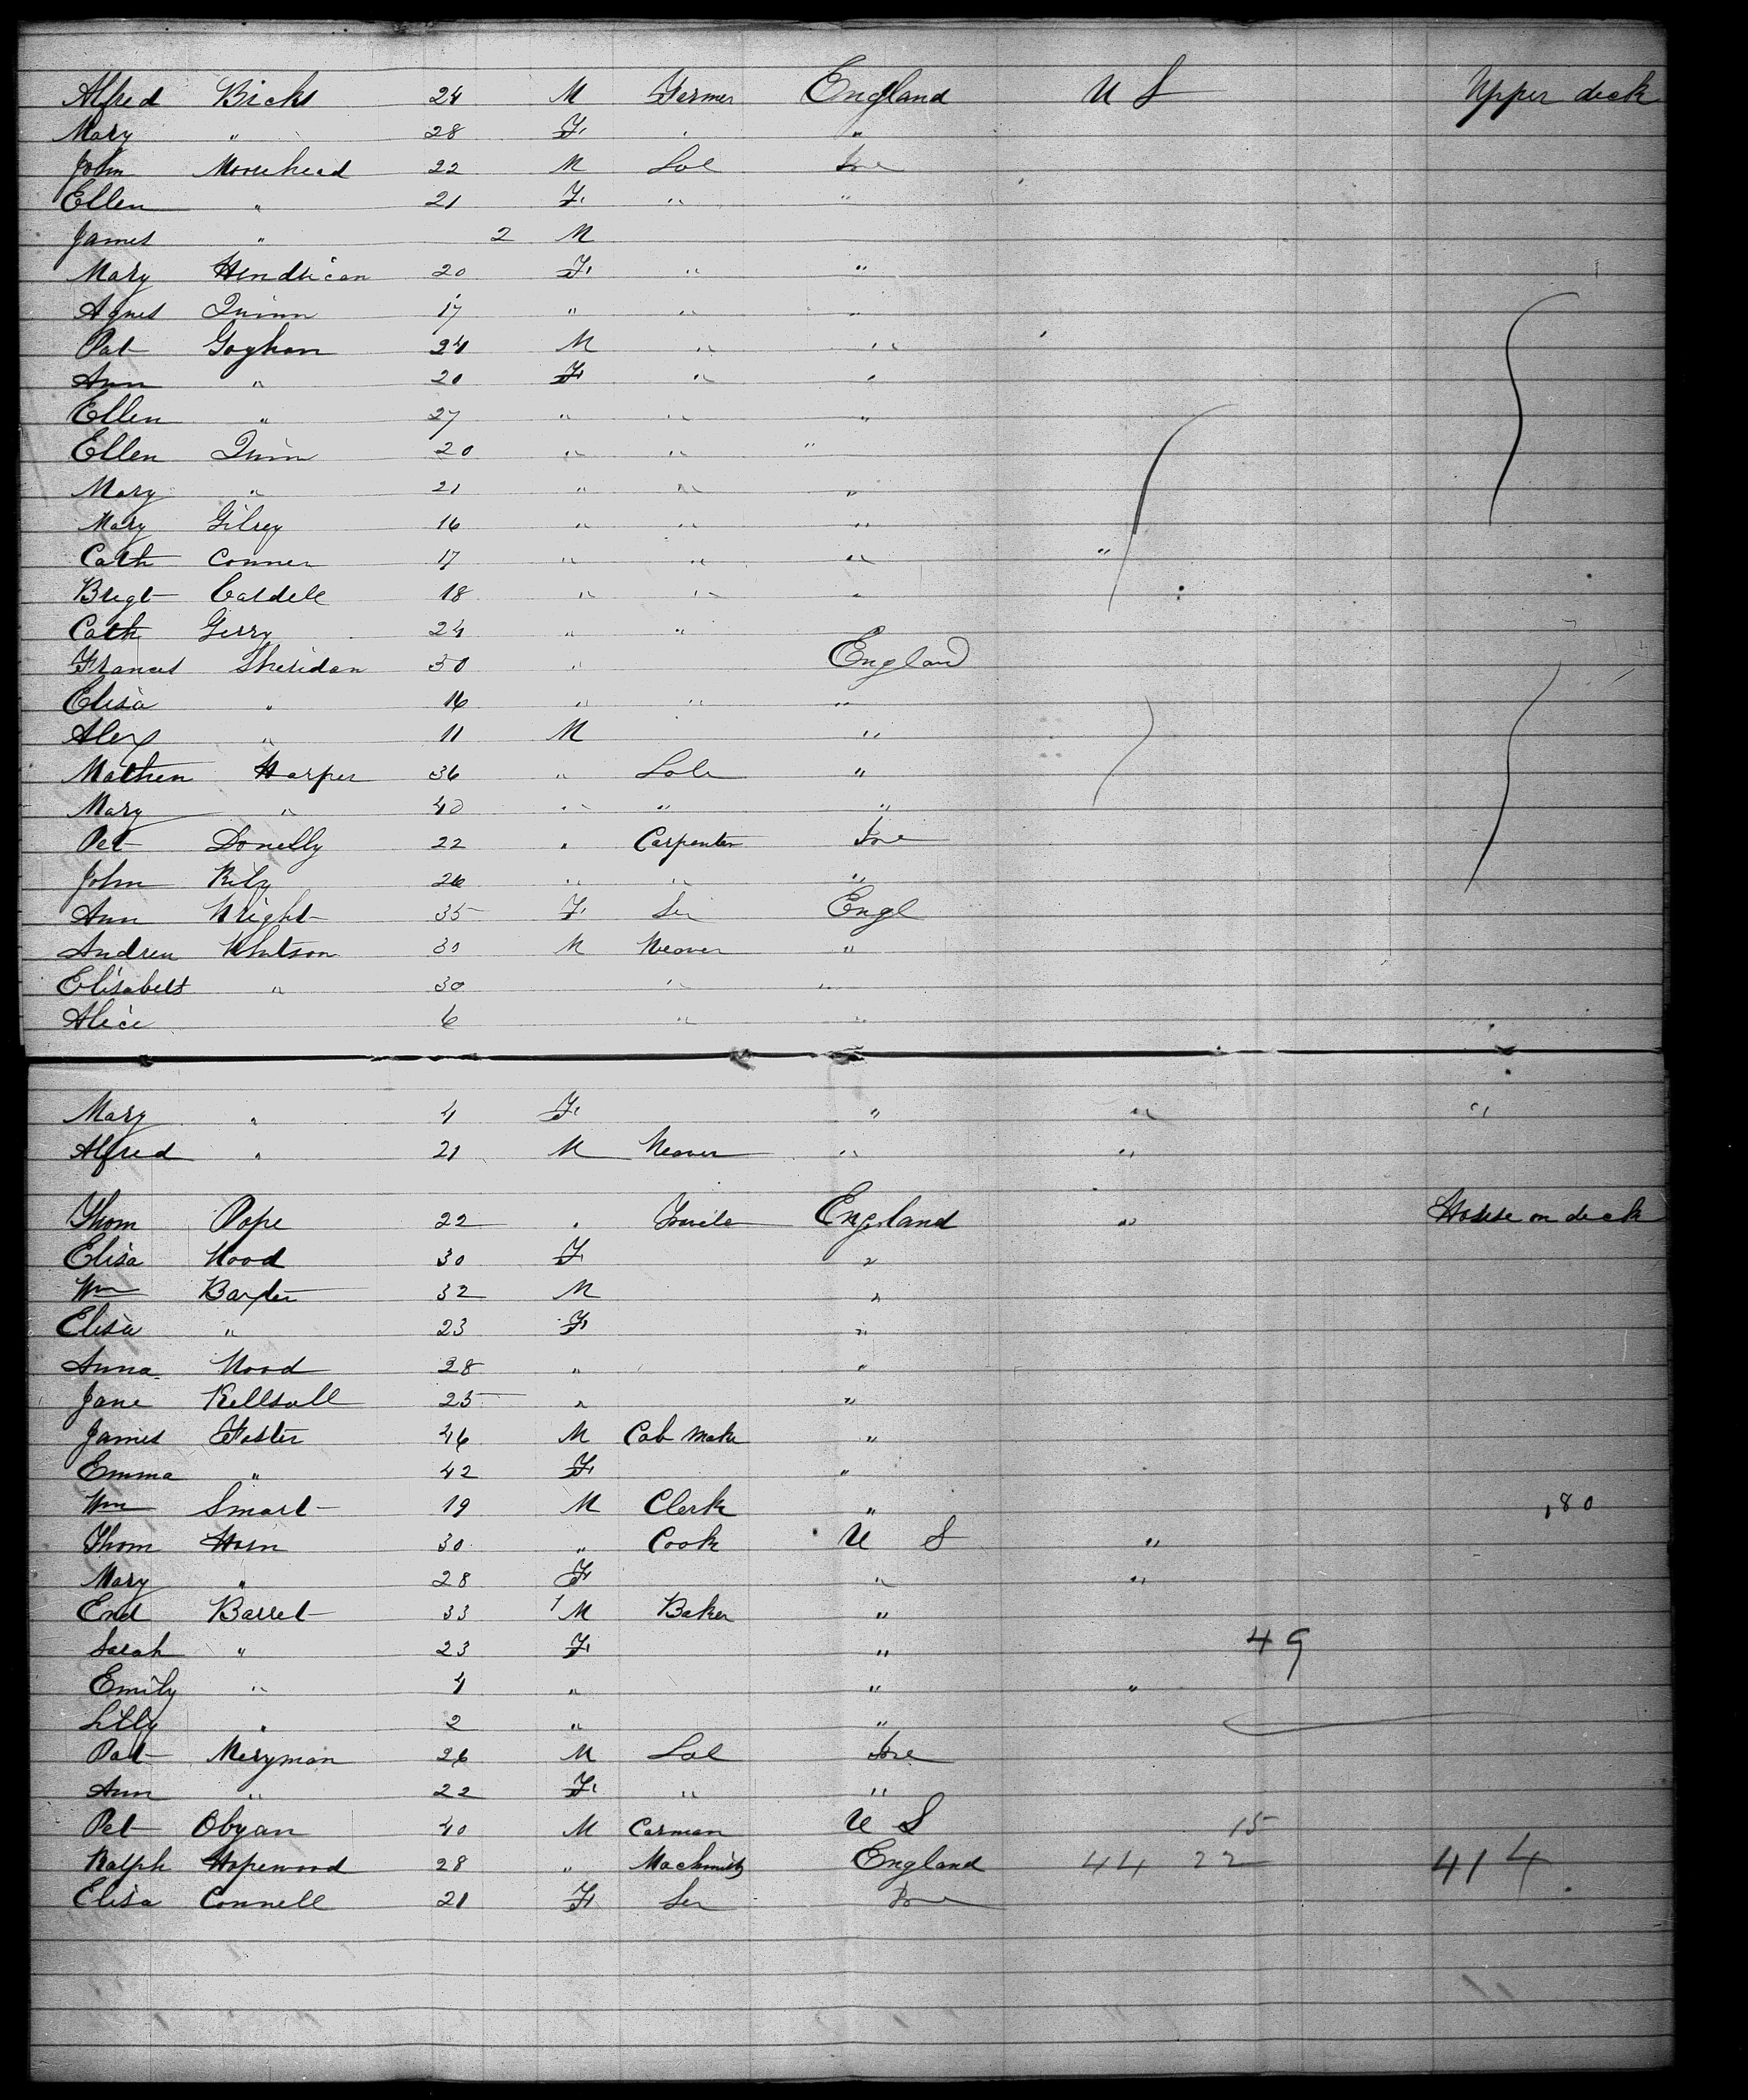 Alfred Bicks 24 M Farmer England U S Upper deck
Mary " 28 F. " "
John Moorehead 22 M Lab Ire
Ellen " 21 F. " "
James " 2 M
Mary Hendrican 20 F. " "
Agnes Quinn 17 " " "
Pat Goghan 24 M " "
Ann " 20 F " "
Ellen " 27 " " "
Ellen Quin 20 " " "
Mary " 21 " " "
Mary Gilroy 16 " " "
Cath Conner 17 " " " "
Brigt Caldell 18 " " "
Cath Gerry 24 " "
Frances Sheridan 30 " England
Elisa " 16 " " "
Alex " 11 M "
Mathew Harper 36 " Lab "
Mary " 40 " " "
Pet Donelly 22 " Carpenter Ire
John Rily 26 " " "
Ann Wright 35 F. Ser Engl
Andrew Whitson 30 M Weaver "
Elisabeth " 30 " "
Alice 6 " "
Mary " 4 F. " " "
Alfred " 21 M Weaver " "
Thom Pope 22 " England " House on deck
Elisa Wood 30 F "
Wm Baxter 32 M "
Elisa " 23 F "
Anna Wood 28 " "
Jane Kellsall 25 " "
James Foster 46 M Cab Make "
Emma " 42 F "
Wm Smart 19 M Clerk " 180
Thom Horn 30 " Cook U S "
Mary " 28 F " "
End Barret 33 M Baker "
Sarah " 23 F " 49
Emily " 4 " " "
Lilly " 2 " "
Pat Meryman 26 M Lab Ire
Ann " 22 F. " "
Pet Obyan 40 M Carman U S 15
Ralph Hopewood 28 " England 44 22 414
Elisa Connell 21 F Ser Ire